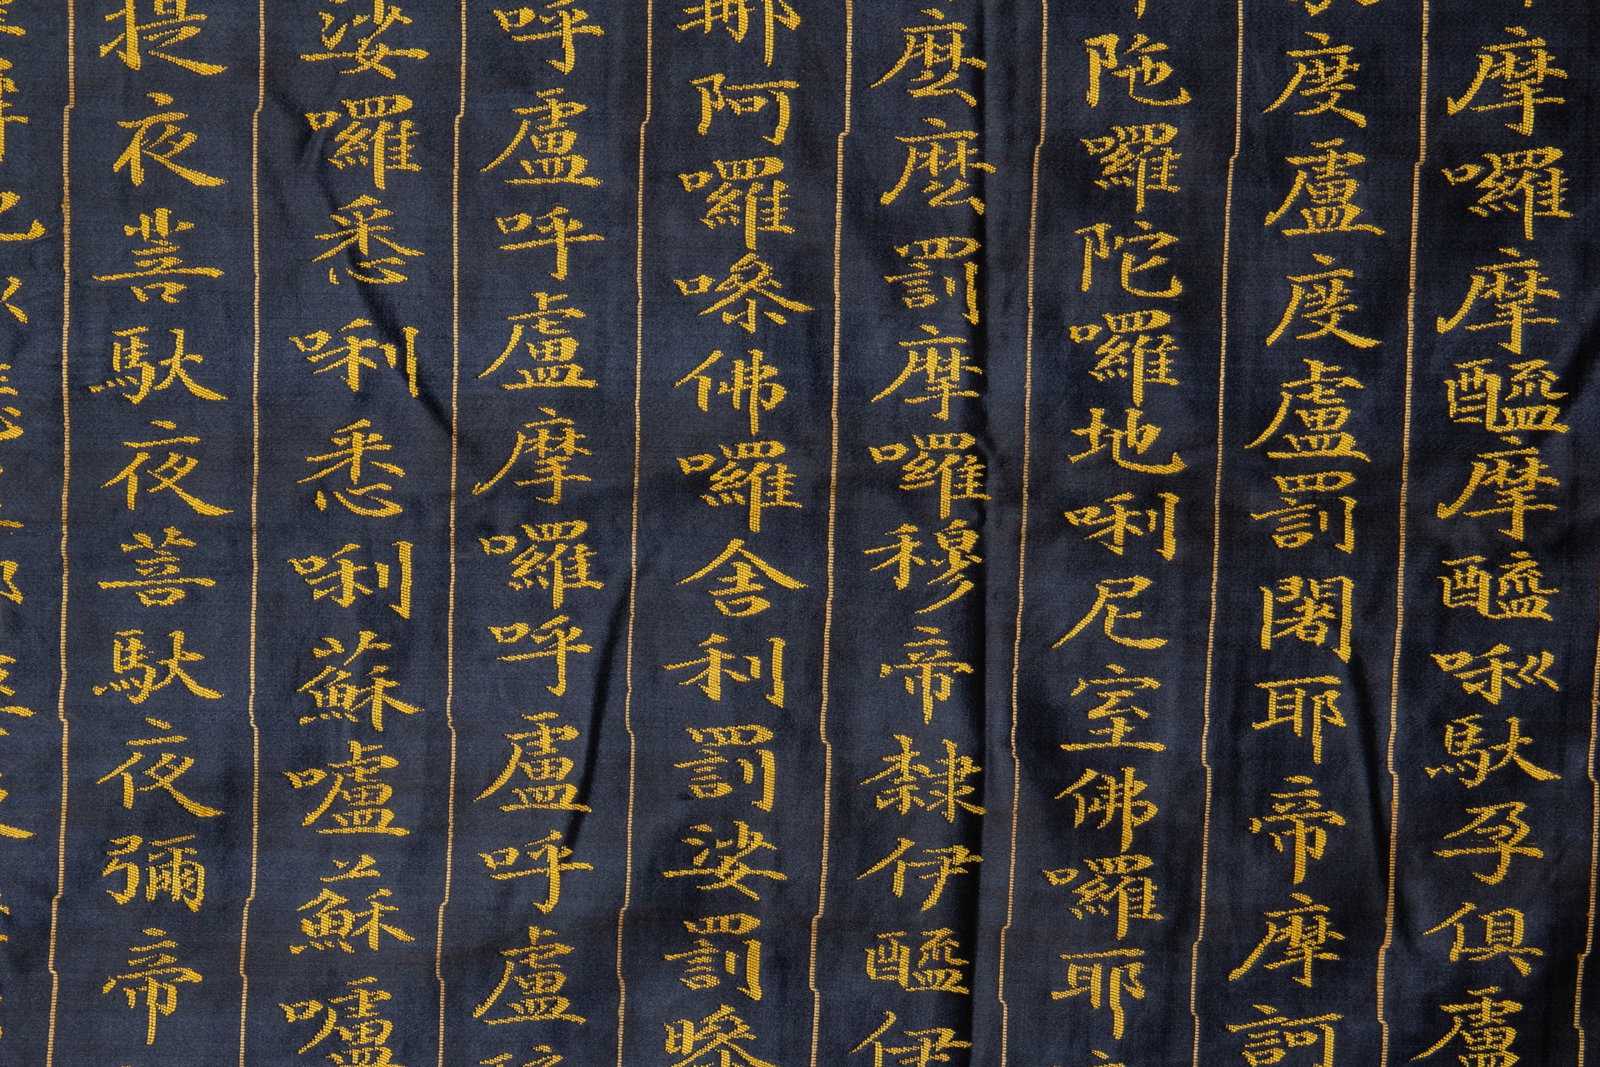 摩囉摩醯摩醯唎馱孕俱盧
度盧度盧罰闍耶帝摩訶
陁囉陀囉地唎尼室佛囉耶
麼麼罰摩囉穆帝隸伊醯伊
那阿囉嘇佛囉舍利罰娑罰嘇
呼盧呼盧摩囉呼盧呼盧
娑囉悉唎悉唎蘇嚧蘇嚧
提夜菩馱夜菩馱夜彌帝